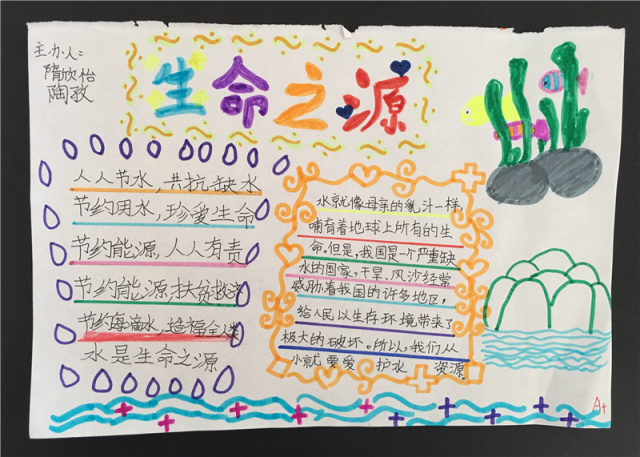 主办人:
隋欣怡
陶孜
生命之源
人人节水,共抗缺水
节约用水,珍爱生命
节约能源,人人有责
节约能源,扶贫
节约每滴水,造福全
水是生命之源
水就像母亲的乳汁一样
哺育着地球上所有的生
命。但是,我国是一个严重缺
水的国家,干旱、风沙经常
威胁着我国的许多地区,
给人民以生存环境带来了
极大的破坏。所以,我们从
小就要爱 护水 资源
A+